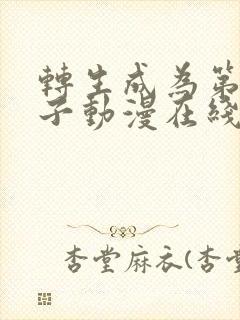 轉生成為第
子動漫在綫
杏堂麻衣(杏堂